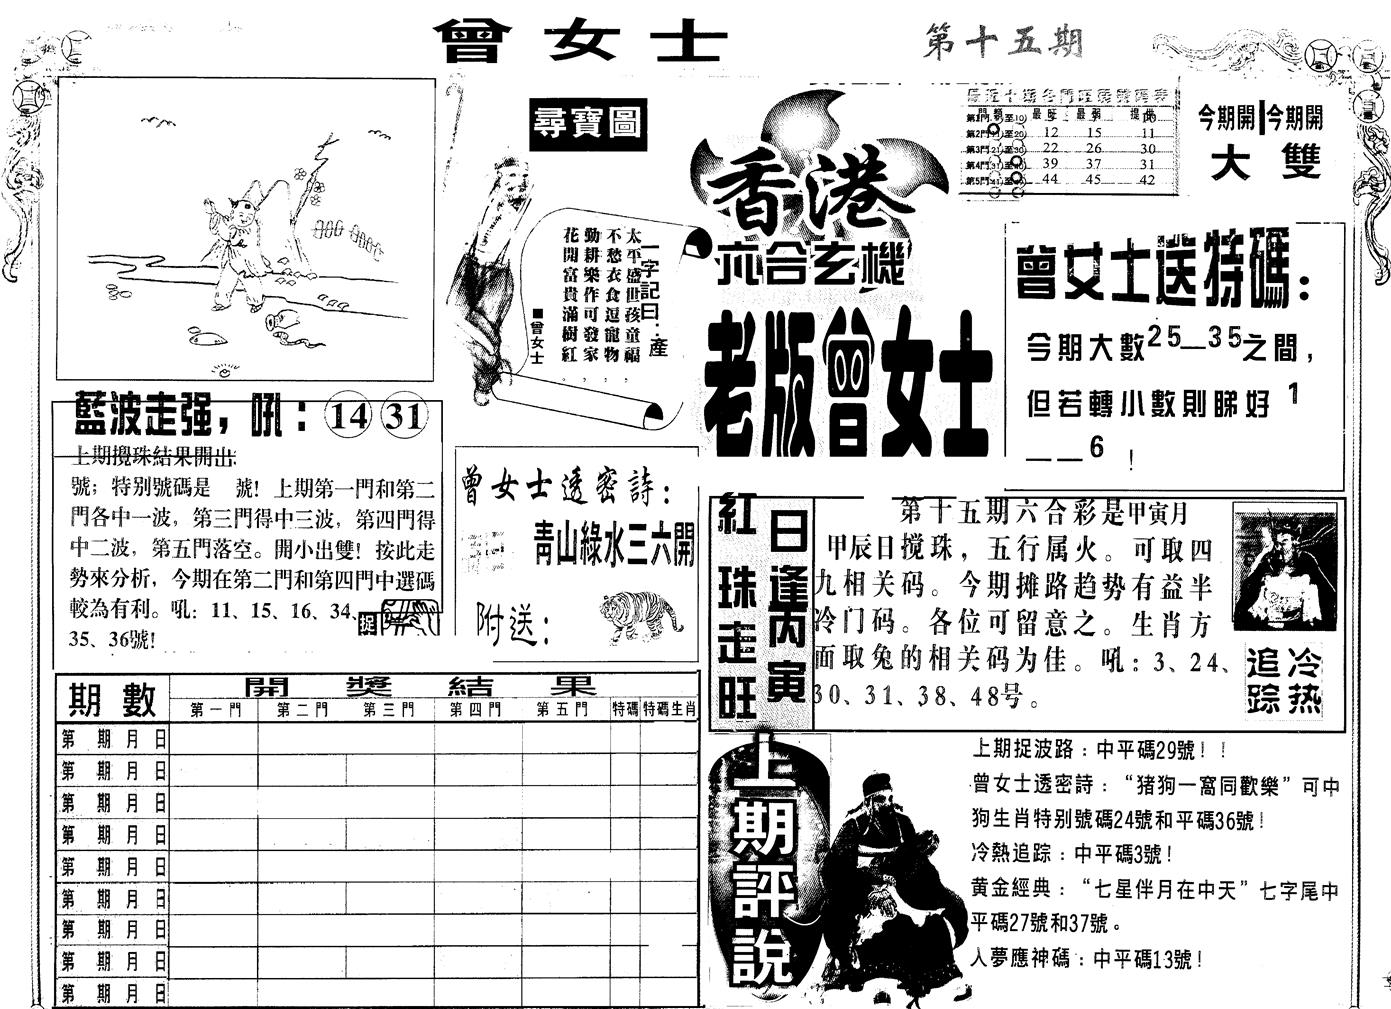 曾女士
第十五期
尋寶圖
一字記曰：產
太平盛世孩童福，
不愁衣食逗寵物，
勤耕樂作可發家，
花開富貴滿樹紅。
■曾女士
香港
六合玄機
老版曾女士
最近十期各門旺弱號碼表
最旺 最弱 提供
第2門 12 15 11
第3門 22 26 30
第4門 39 37 31
第5門 44 45 42
今期開 今期開
大 雙
曾女士送特碼：
今期大數25—35之間，
但若轉小數則睇好 1
——6！
藍波走强，吼：14 31
上期攪珠結果開出:
號；特別號碼是 號！上期第一門和第二
門各中一波，第三門得中三波，第四門得
中二波，第五門落空。開小出雙！按此走
勢來分析，今期在第二門和第四門中選碼
較為有利。吼：11、15、16、34、
35、36號!
捉
曾女士透密詩：
青山綠水三六開
附送：
紅珠走旺
日逢丙寅
第十五期六合彩是甲寅月
甲辰日搅珠，五行属火。可取四
九相关码。今期摊路趋势有益半
冷门码。各位可留意之。生肖方
面取兔的相关码为佳。吼：3、24、
30、31、38、48号。
追踪
冷热
期數 開獎結果
第一門 第二門 第三門 第四門 第五門 特碼 特碼生肖
第 期 月 日
第 期 月 日
第 期 月 日
第 期 月 日
第 期 月 日
第 期 月 日
第 期 月 日
第 期 月 日
第 期 月 日
上期評說
上期捉波路：中平碼29號！！
曾女士透密詩：“猪狗一窩同歡樂”可中
狗生肖特别號碼24號和平碼36號！
冷熱追踪：中平碼3號！
黄金經典：“七星伴月在中天”七字尾中
平碼27號和37號。
人夢應神碼：中平碼13號！